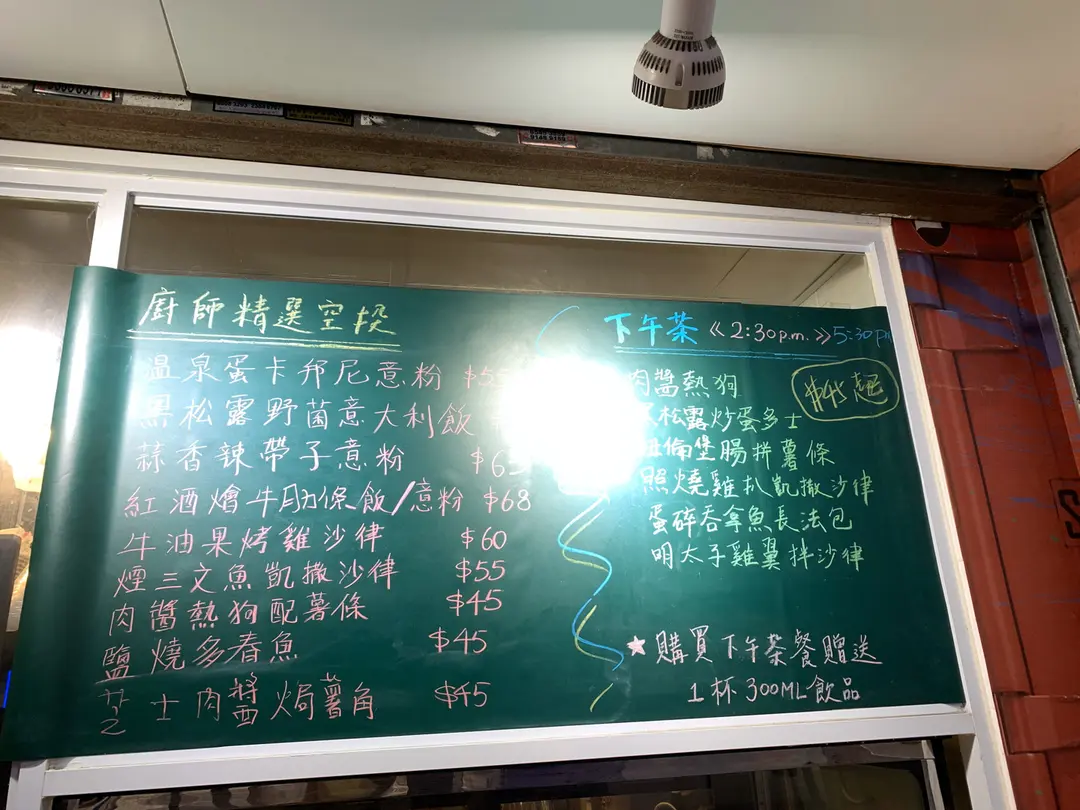 廚師精選空投
温泉蛋卡邦尼意粉 $55
黑松露野菌意大利飯
蒜香辣帶子意粉 $65
紅酒燴牛肋條飯/意粉 $68
牛油果烤雞沙律 $60
煙三文魚凱撒沙律 $55
肉醬熱狗配薯條 $45
鹽燒多春魚 $45
芝士肉醬焗薯角 $45
下午茶 《2:30p.m.》5:30pm
$45起
肉醬熱狗
黑松露炒蛋多士
紐倫堡腸拼薯條
照燒雞扒凱撒沙律
蛋碎吞拿魚長法包
明太子雞翼拌沙律
★購買下午茶餐贈送
1杯300ML飲品